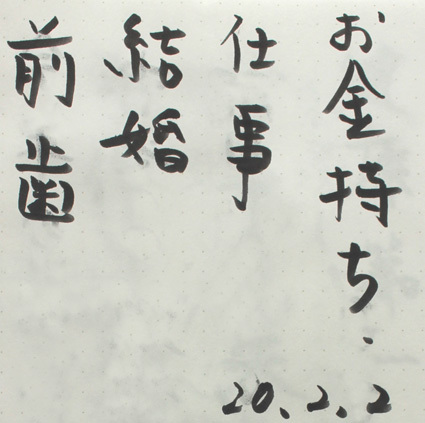 お金持ち.
仕事
結婚
前歯
20.2.2